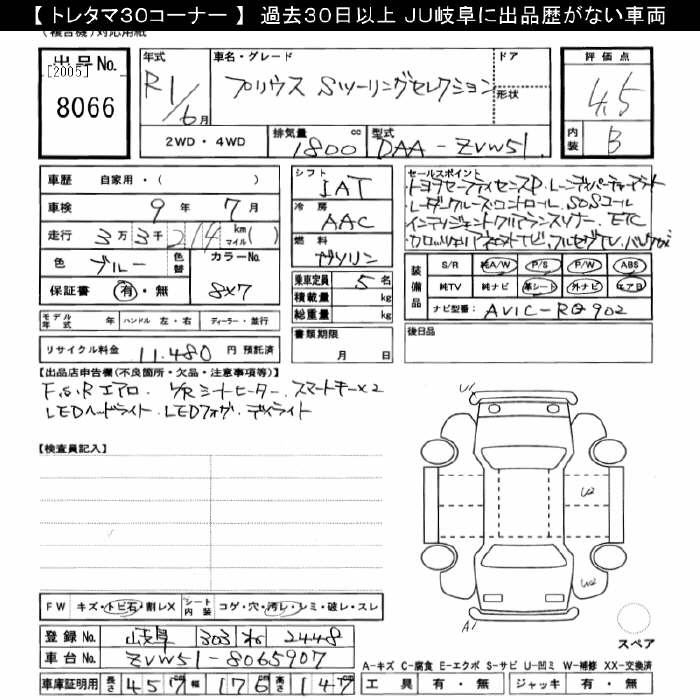 【 トレタマ30コーナー 】 過去30日以上 JU岐阜に出品歴がない車両
(複合機)対応用紙
出品No. [2005] 8066
年式 R1/6月
車名・グレード プリウス Sツーリングセレクション
ドア 形状
評価点 4.5
内装 B
2WD・4WD
排気量 1800 cc
型式 DAA-ZVW51
車歴 自家用・( )
車検 9年 7月
走行 3万3千214 km マイル( )
色 ブルー 色替 カラーNo. 8X7
保証書 有・無
モデル年式 年 ハンドル 左・右 ディーラー・並行
リサイクル料金 11,480 円 預託済
シフト IAT
冷房 AAC
燃料 ガソリン
乗車定員 5名
積載量 kg
総重量 kg
書類期限 月 日
セールスポイント
・トヨタセーフティセンスP・レーンディパーチャーアラート
・レーダークルーズコントロール・SOSコール
・インテリジェントクリアランスソナー・ETC
装備品 S/R 純A/W P/S P/W ABS
純TV 純ナビ 革シート 外ナビ エアB
ナビ型番: AVIC-RQ902
後日品
【出品店申告欄(不良箇所・欠品・注意事項等)】
F.S.Rエアロ. シートヒーター. スマートキーx2
LEDヘッドライト. LEDフォグ. デイライト
【検査員記入】
U1
U2
A1
FW キズ・トビ石・割レX シート内装 コゲ・穴・汚レ・シミ・破レ・スレ
登録No. 岐阜 303 ね 2448
車台No. ZVW51-8065907
車庫証明用 長さ 457 幅 176 高さ 147
スペア
A-キズ C-腐食 E-エクボ S-サビ U-凹ミ W-補修 XX-交換済
工具 有・無 ジャッキ 有・無